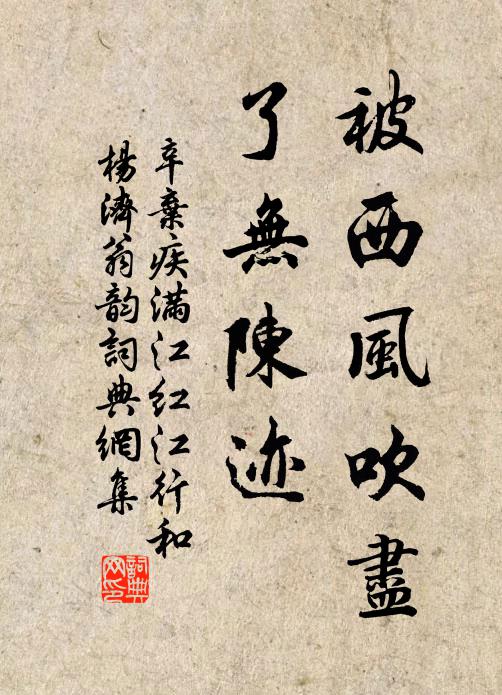 被西風吹盡
了無陳迹
辛棄疾滿江红江行和
楊濟翁韵詞典網集
詞典网印